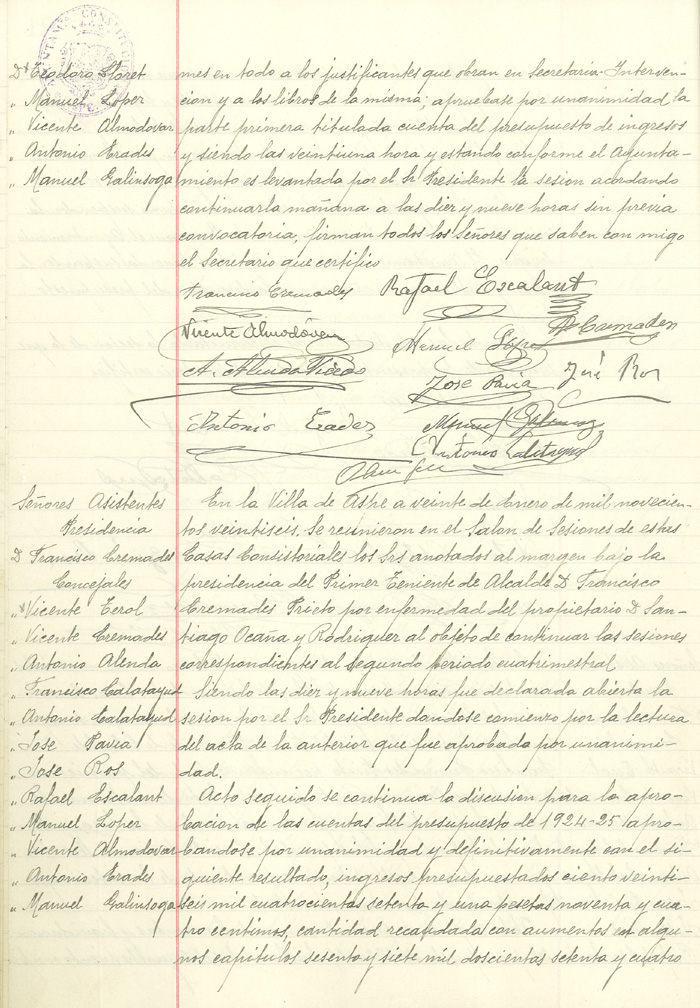 Dn Teodoro Lloret
„ Manuel Lopez
„ Vicente Almodovar
„ Antonio Erades
„ Manuel Galinsoga
mes en todo a los justificantes que obran en Secretaria-Interven-
cion y a los libros de la misma; apruebase por unanimidad la
parte primera titulada cuenta del presupuesto de ingresos
y siendo las veintiuna hora y estando conforme el Ayunta-
miento es levantada por el Sr Presidente la sesion acordando
continuarla mañana a las diez y nueve horas sin previa
convocatoria, firman todos los Señores que saben con migo
el Secretario que certifico
Francisco Cremades
Rafael Escalant
Vicente Almodóvar
Manuel Lopez
A. Cremades
Jose Pavia
José Ros
Antonio Erades
Antonio Calatayud
Señores Asistentes
Presidencia
D Francisco Cremades
Concejales
„ Vicente Cerol
„ Vicente Cremades
„ Antonio Alenda
„ Francisco Calatayud
„ Antonio Calatayud
„ Jose Pavia
„ Jose Ros
„ Rafael Escalant
„ Manuel Lopez
„ Vicente Almodovar
„ Antonio Erades
„ Manuel Galinsoga
En la Villa de Aspe a veinte de Enero de mil novecien-
tos veintiseis, se reunieron en el Salon de Sesiones de estas
Casas Consistoriales los Srs anotados al margen bajo la
presidencia del Primer Teniente de Alcalde D Francisco
Cremades Prieto por enfermedad del propietario D San-
tiago Ocaña y Rodriguez al objeto de continuar las sesiones
correspondientes al segundo periodo cuatrimestral
Siendo las diez y nueve horas fue declarada abierta la
sesion por el Sr Presidente dandose comienzo por la lectura
del acta de la anterior que fue aprobada por unanimi-
dad.
Acto seguido se continua la discusion para la apro-
bacion de las cuentas del presupuesto de 1924-25 apro-
bandose por unanimidad y definitivamente con el si-
guiente resultado, ingresos presupuestados ciento veinti-
seis mil cuatrocientas setenta y una pesetas noventa y cua-
tro centimos, cantidad recaudada con aumentos en algu-
nos capitulos sesenta y siete mil doscientas setenta y cuatro